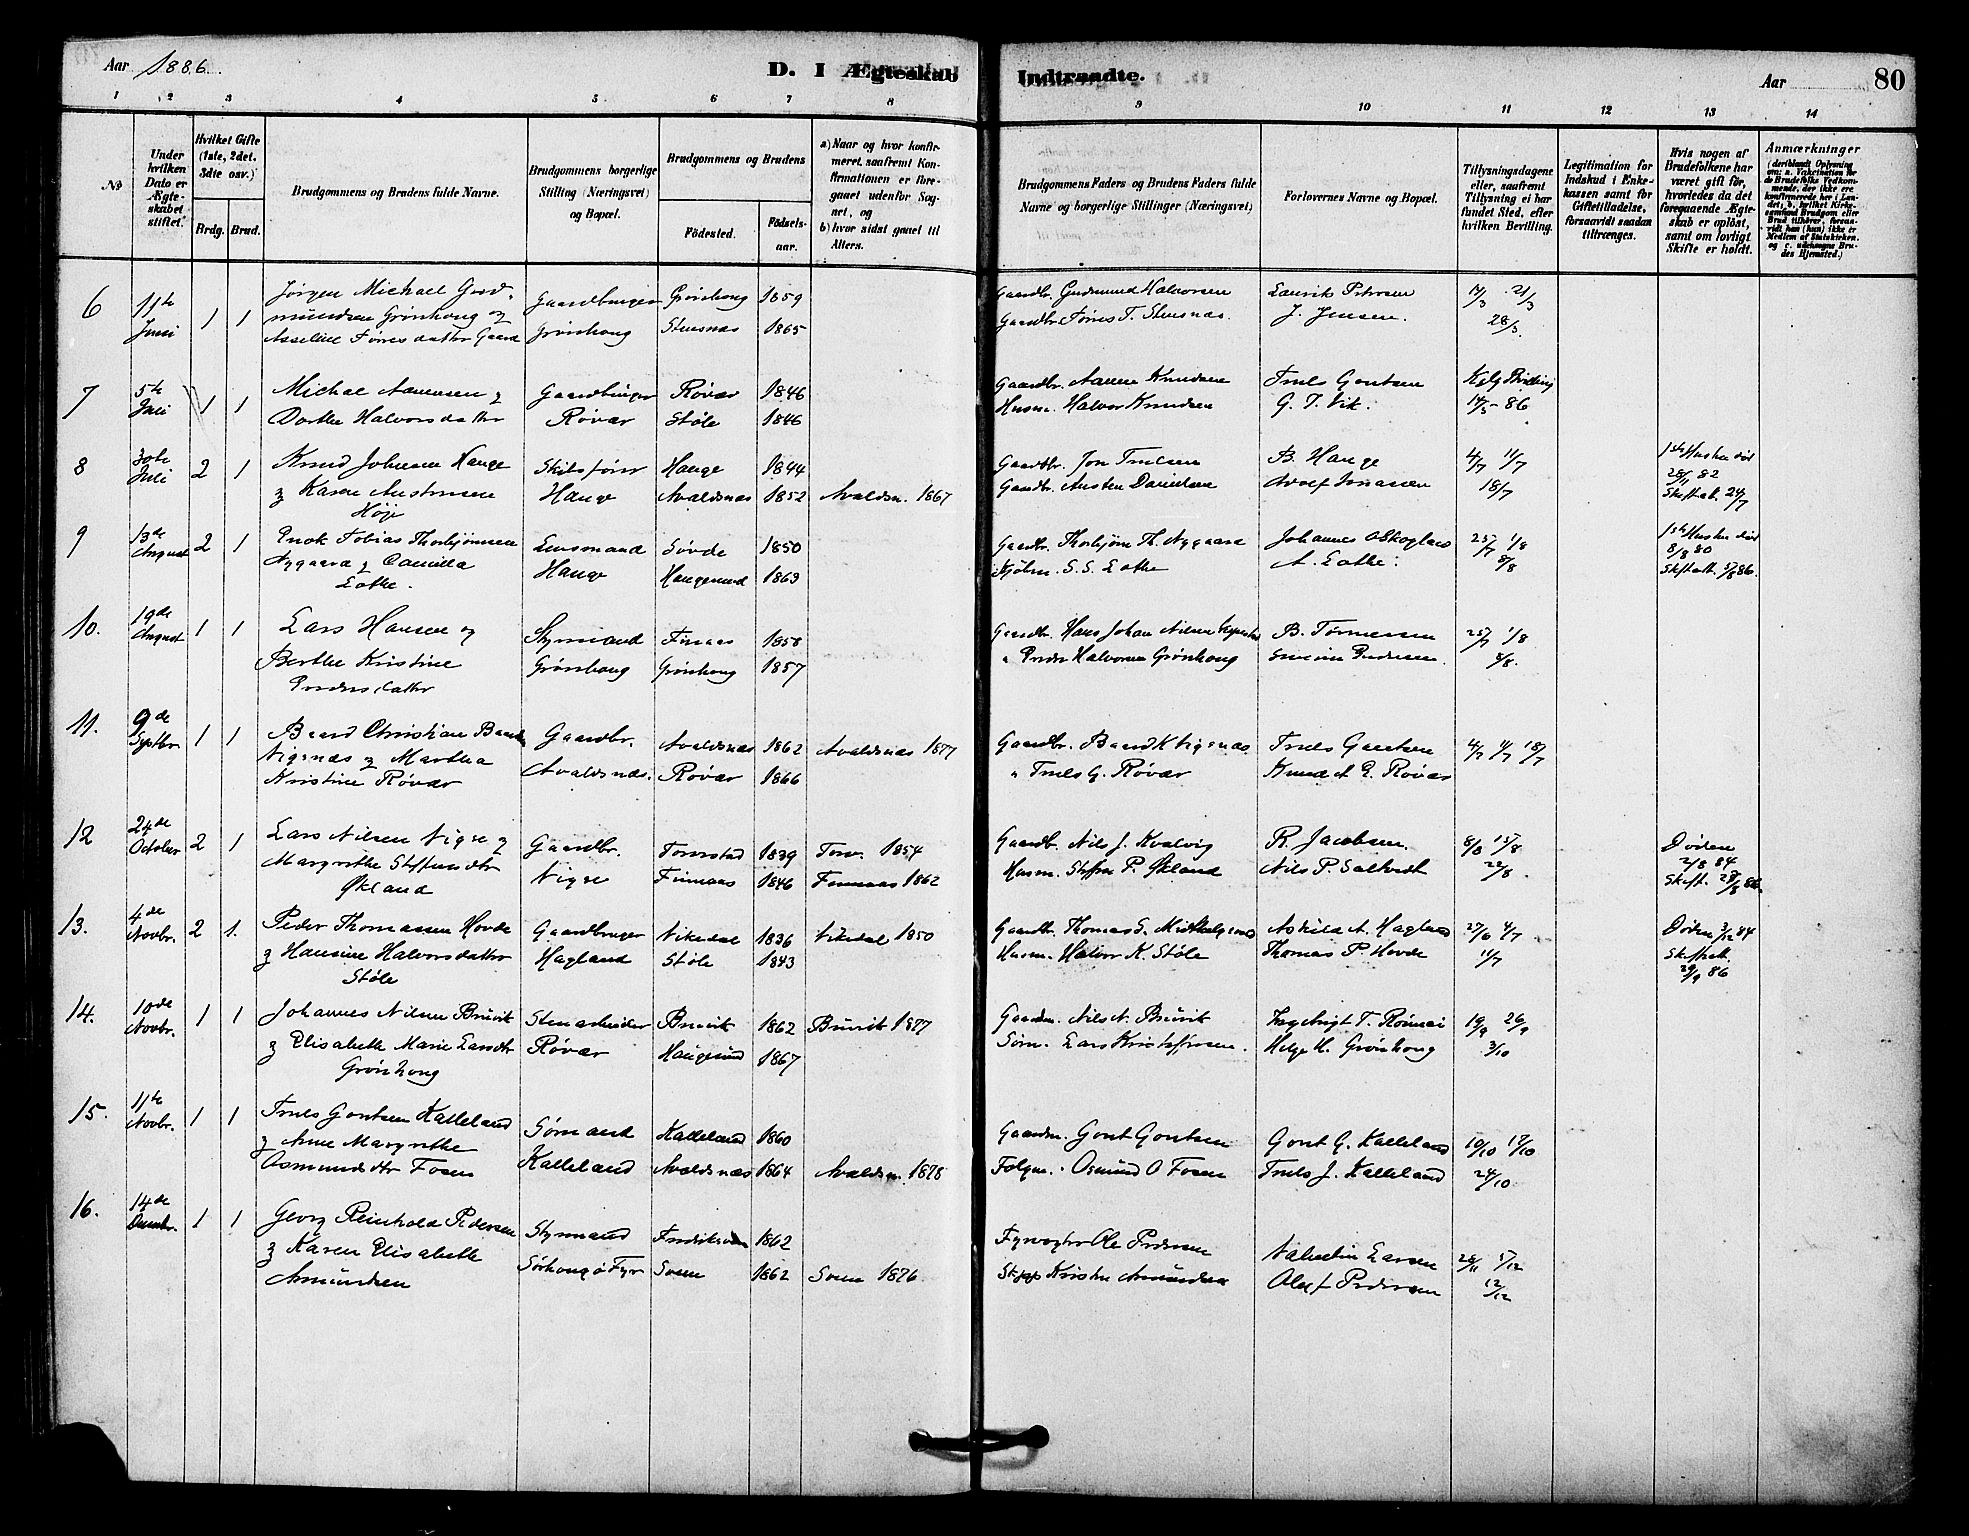 Aar 1886.
D. I Ægteskab Indtraadte.
Aar 80
1 2 3 4 5 6 7 8 9 10 11 12 13 14
No
Under hvilken Dato er Ægteskabet stiftet.
Hvilket Gifte (1ste, 2det, 3die osv.)
Brdg. Brud.
Brudgommens og Brudens fulde Navne.
Brudgommens borgerlige Stilling (Næringsvei) og Bopæl.
Brudgommens og Brudens
Fødested.
Fødselsaar.
a) Naar og hvor konfirmeret, saafremt Konfirmationen er foregaaet udenfor Sognet, og
b) hvor sidst gaaet til Alters.
Brudgommens Faders og Brudens Faders fulde Navne og borgerlige Stillinger (Næringsvei)
Forlovernes Navne og Bopæl.
Tillysningsdagene eller, saafremt Tillysning ei har fundet Sted, efter hvilken Bevilling.
Legitimation for Indskud i Enkekassen samt for Giftetilladelse, forsaavidt saadan tiltrænges.
Hvis nogen af Brudefolkene har været gift før, hvorledes da det foregaaende Ægteskab er opløst, samt om lovligt Skifte er holdt.
Anmærkninger (deriblandt Oplysning om: a. Vakcination for de Brudefolks Vedkommende, der ikke ere konfirmerede her i Landet, b. hvilket Kirkesamfund Brudgom eller Brud tilhører, forsaavidt han (hun) ikke er Medlem af Statskirken, og c. udenbygns Brudes Hjemsted.)
6 11te Juni 1 1
Jørgen Michael Gudmundsen Grønhong og
Asseline Tørresdatter Gaard
Gaardbruger Grønhong
Grønhong 1859
Stensnæs 1865
Gaardbr. Gudmund Halvorsen
Gaardbr. Tørres T. Stensnæs.
Laurits Petersen
J. Jensen.
14/3 21/3
28/3.
7 5te Juli 1 1
Michal Aanensen &
Dorthe Halvorsdatter
Gaardbruger Røvær
Røvær 1846
Støle 1846
Gaardbr. Aanen Knudsen
Husm. Halvor Knudsen
Truls Gautsen
G. T. Vik.
Kglg Bevilling
14/5 - 86
8 30te Juli 2 1
Knud Johnsen Hauge
& Karen Austensen
Høje
Hauge
Hauge 1844
Avaldsnæs 1852 Avaldsn. 1867
Gaardbr. Jon Trulsen
Gaardbr. Austen Danielsen
B. Hauge
Adolf Jonassen
4/7 11/7
18/7
1ste Hustru død
28/11 82
Skifteatt. 24/7
9 13de August 2 1
Enok Tobias Thorbjørnsen
Nygaard & Camilla
Lothe.
Lensmand
Hauge
Søvde 1850
Haugesund 1863
Gaardbr. Thorbjørn Th. Nygaard
Kjøbm. S. S. Lothe
Johannes O Skogland
A. Lothe.
25/7 1/8
8/8
1ste Hustru død
8/3 80
Skifteatt. 5/8 86.
10. 19de August 1 1
Lars Hansen og
Berthe Kristine
Pedersdatter
Styrmand
Grønhong
Finaas 1858
Grønhong 1857
Gaardbr. Hans Johan Nilsen
" Peder Halvorsen Grønhong
B. Tørresen
25/7 1/8
8/8.
11. 9de Septbr. 1 1
Baard Christian Baards.
Vigsnæs & Martha
Kristine Røvær
Gaardbr.
Avaldsnæs.
Avaldsnæs 1862 Avaldsnæs 1877
Røvær 1866
Gaardbr. Baard K Vigsnæs
" Truls G. Røvær
Truls Gautsen
Knud A. E. Røvær
4/7 11/7 18/7
12 24de October 2 1
Lars Nilsen Vigse &
Margrethe Steffensdtr
Økland
Gaardbr.
Vigse
Torvestad 1839 Torv. 1854
Finnaas 1846 Finnaas 1862
Gaardbr. Nils J. Kvalvig
Husm. Steffen P. Økland
R. Jacobsen.
Nils P. Saltvedt
8/8 15/8
22/8.
Døden
2/8 84
Skift. 28/8 86.
13. 4de Novbr. 2 1.
Peder Thomassen Hovde
& Hansine Halvorsdatter
Støle
Gaardbruger
Hagland
Vikedal 1836 Vikedal 1850
Støle 1843
Gaardbr. Thomas S.
Husm. Halvor K. Støle
Askild A. Hagland
Thomas P. Hovde
27/6 4/7
11/7
Døden 3/12 84
Skifteatt.
29/9 86
14. 10de Novbr. 1 1
Johannes Nilsen Bruvik
& Elisabeth Marie Larsdtr
Grønhong
Stenarbeider
Røvær
Bruvik 1862 Bruvik 1877
Haugesund 1867
Gaardm. Nils N. Bruvik
Sørm. Lars Kristoffersen.
Ingebrigt T.
Helge H. Grønhong
19/9 26/9
3/10
15. 11te Novbr. 1 1
Truls Gautsen Kalleland
& Anne Margrethe
Osmundsdtr Fosen
Sømand
Kalleland
Kalleland 1860
Avaldsnæs 1864 Avaldsn. 1878
Gaardm. Gout Goutsen
Folgm. Osmund O Fosen
Gout G. Kalleland
Truls J. Kalleland
10/10 17/10
24/10
16. 14de Decembr. 1 1
Georg Reinhold Pedersen
& Karen Elisabeth
Amundsen
Styrmand
Sørhougø Fyr
1862
Sveen 1862 Sveen 1876.
Fyrvogter Ole Pedersen
Skipp. Kristen Amundsen
Valentin Larsen
Oluf Pedersen
28/11 5/12
12/12